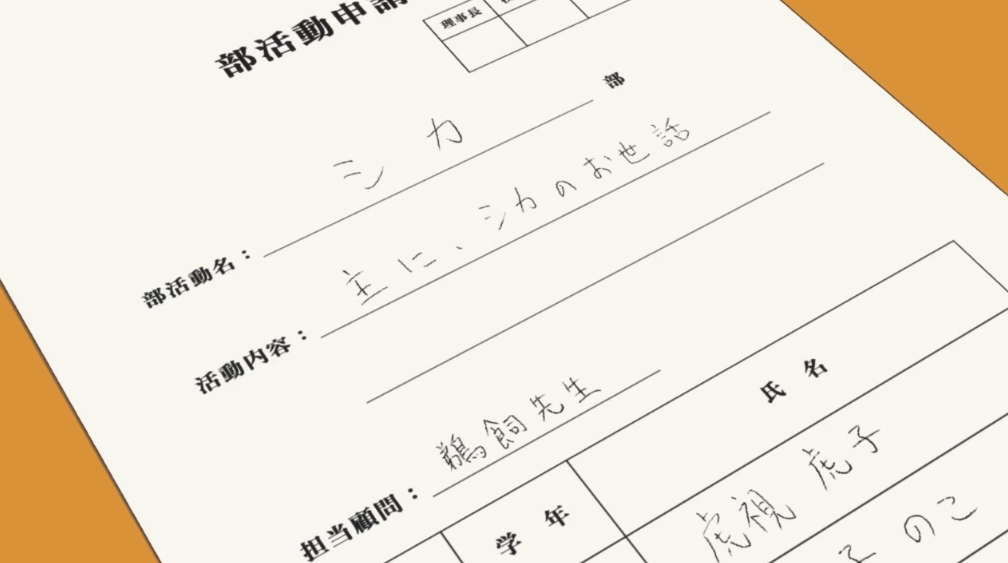 部活動申請
理事長
シカ 部
部活動名：
主に、シカのお世話
活動内容：
鵜飼先生
担当顧問：
学年 氏名
虎視 虎子
のこ